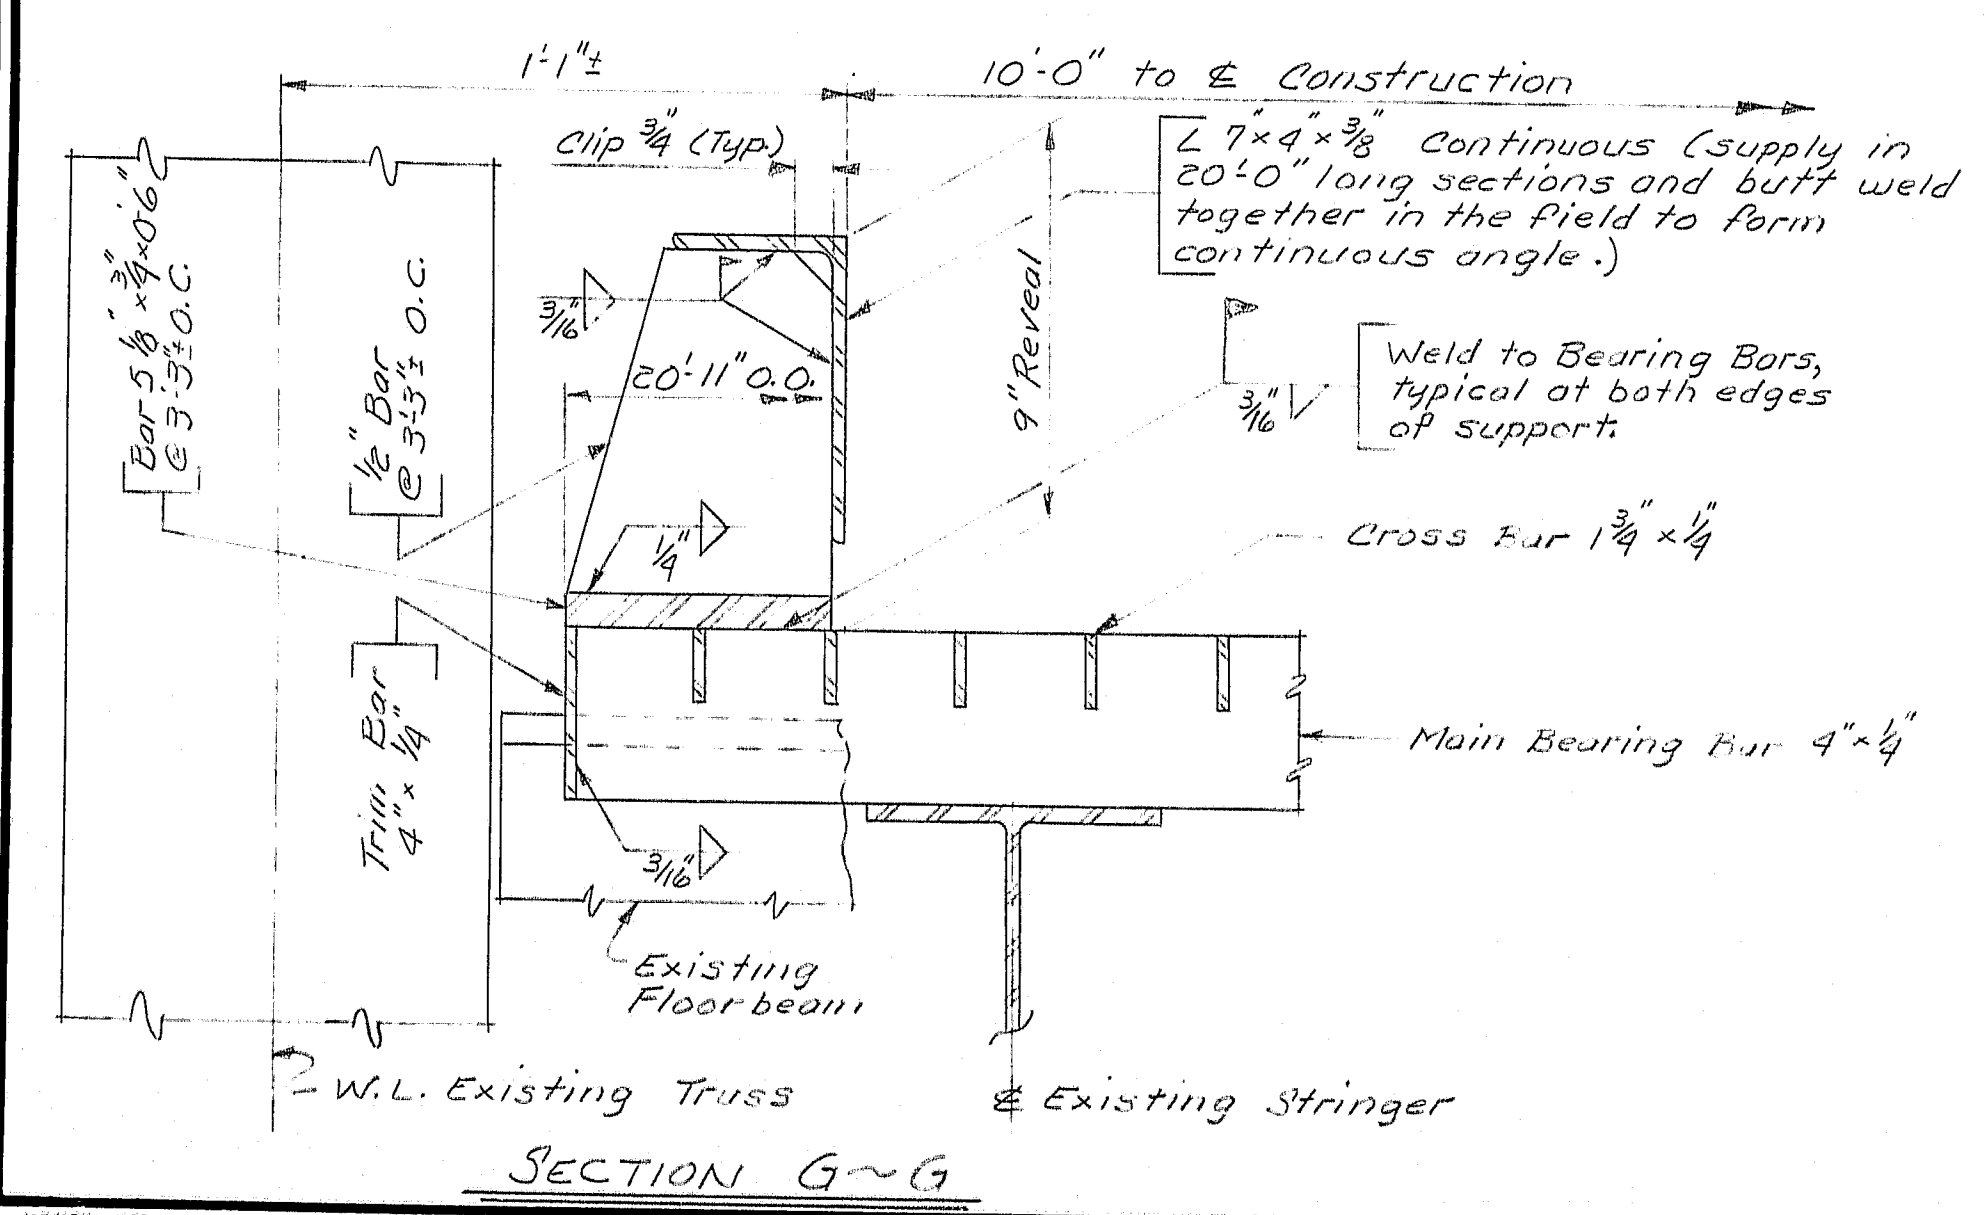 1'-1"±
10'-0" to ℄ Construction
Clip 3/4" (Typ.)
L 7"x4"x3/8" Continuous (supply in
20'-0" long sections and butt weld
together in the field to form
continuous angle.)
Bar 5 1/8" x 3/4" x 0'-6"
@ 3'-3"± O.C.
1/2" Bar
@ 3'-3"± O.C.
3/16"
20'-11" O.O.
9" Reveal
3/16"
Weld to Bearing Bars,
typical at both edges
of support.
1/4"
Cross Bar 1 3/4" x 1/4"
Trim Bar
4" x 1/4"
Main Bearing Bar 4" x 1/4"
3/16"
Existing
Floorbeam
W.L. Existing Truss
℄ Existing Stringer
SECTION G~G